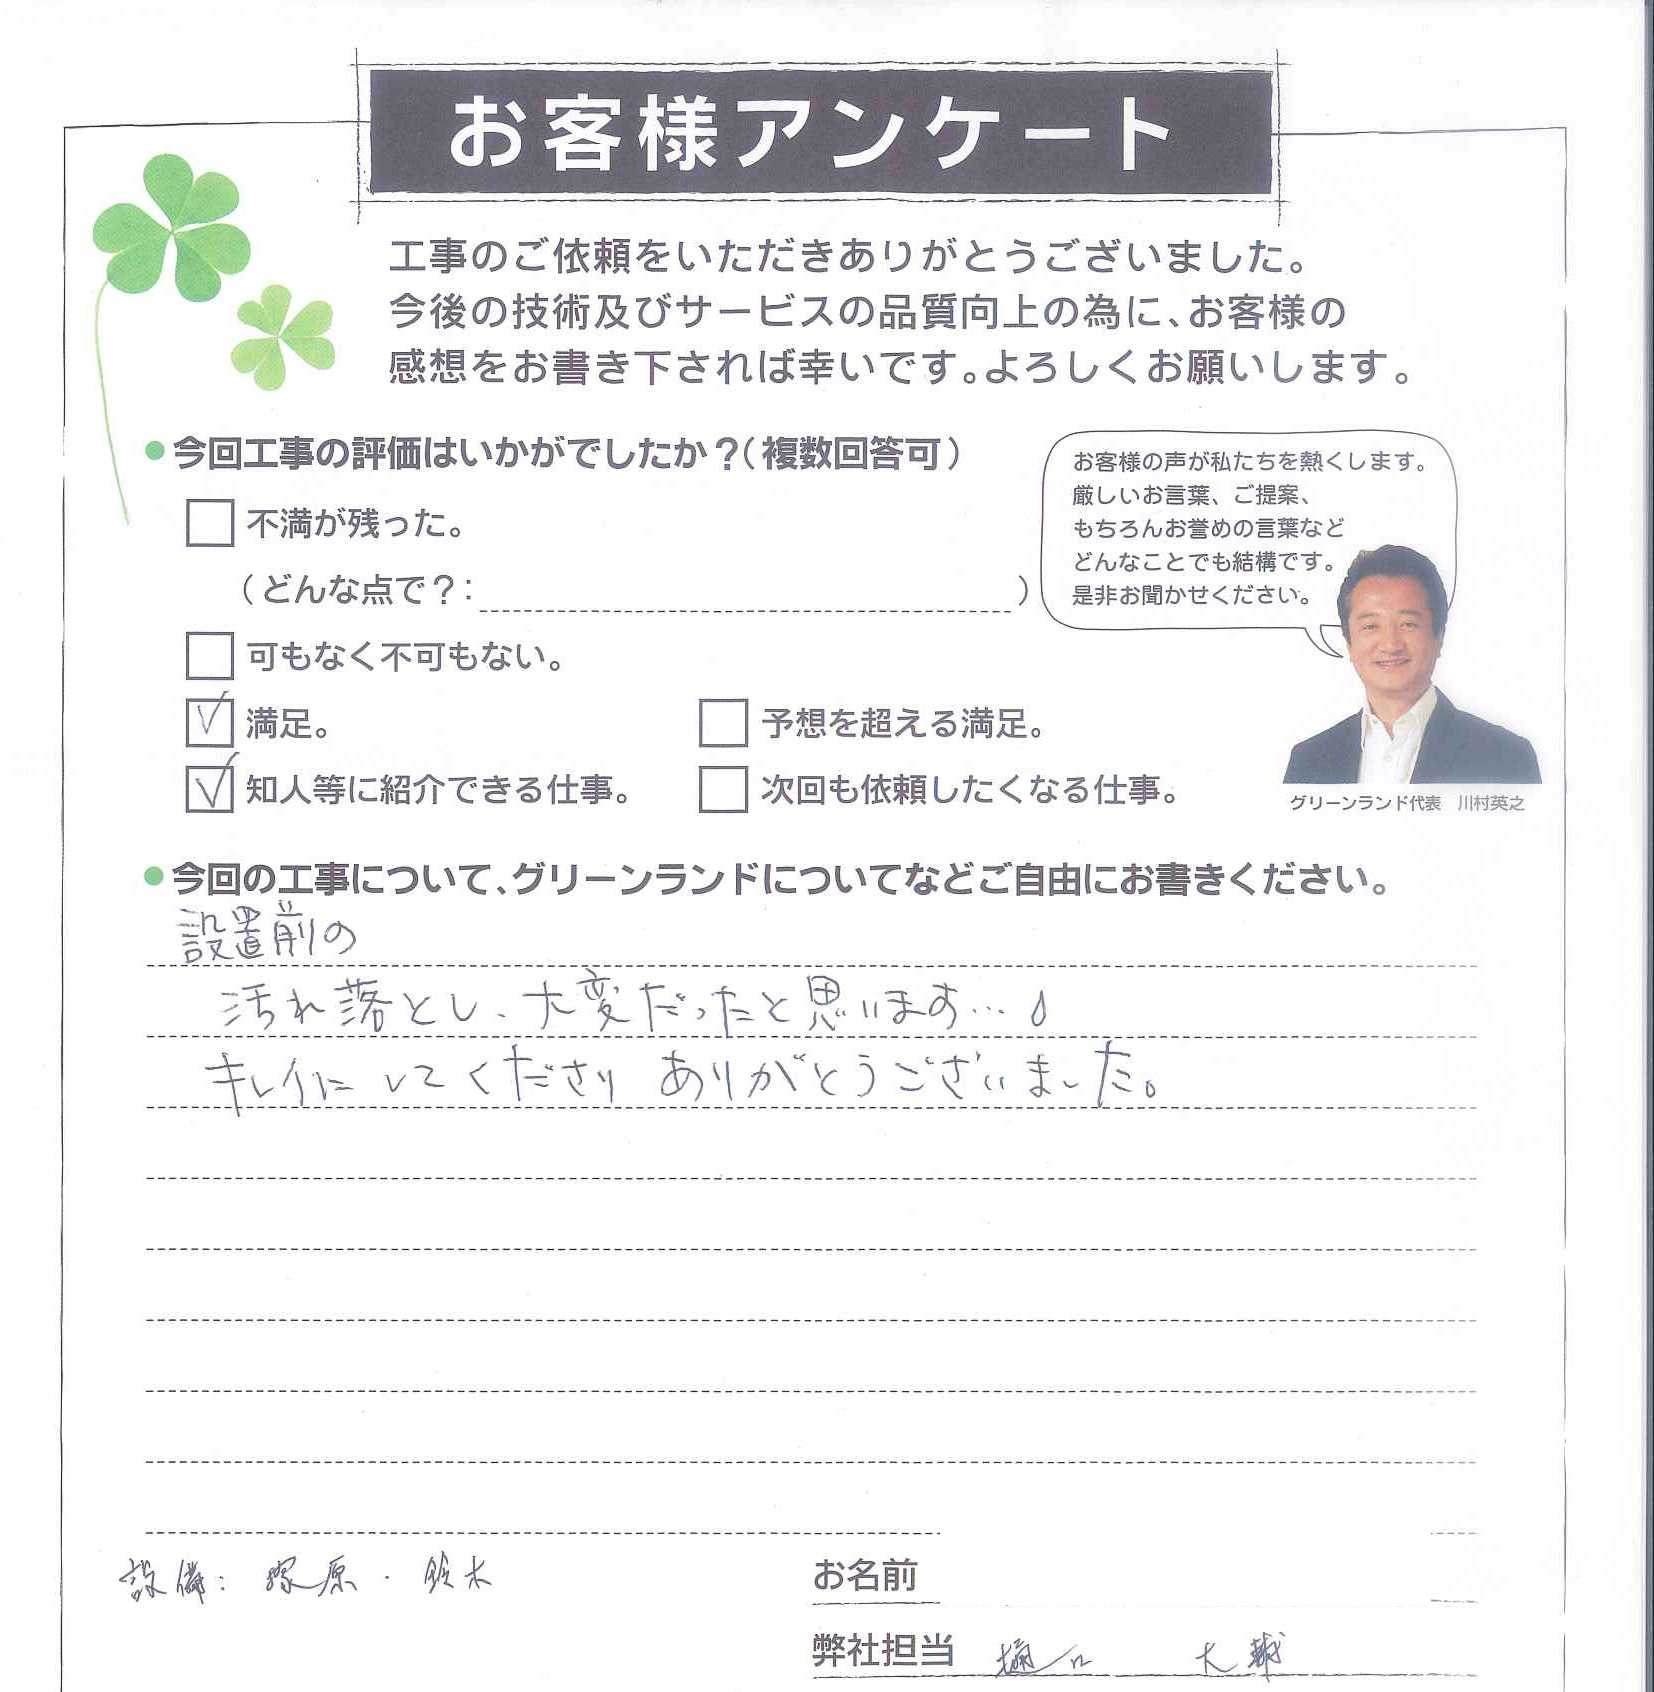 お客様アンケート
工事のご依頼をいただきありがとうございました。
今後の技術及びサービスの品質向上の為に、お客様の
感想をお書き下されば幸いです。よろしくお願いします。
● 今回工事の評価はいかがでしたか？(複数回答可)
不満が残った。
(どんな点で？: )
可もなく不可もない。
満足。
予想を超える満足。
知人等に紹介できる仕事。
次回も依頼したくなる仕事。
お客様の声が私たちを熱くします。
厳しいお言葉、ご提案、
もちろんお誉めの言葉など
どんなことでも結構です。
是非お聞かせください。
グリーンランド代表 川村英之
● 今回の工事について、グリーンランドについてなどご自由にお書きください。
設置前の
汚れ落とし、大変だったと思います…
キレイにしてくださり ありがとうございました。
設備: 塚原・鈴木
お名前
弊社担当 樋口 大輔